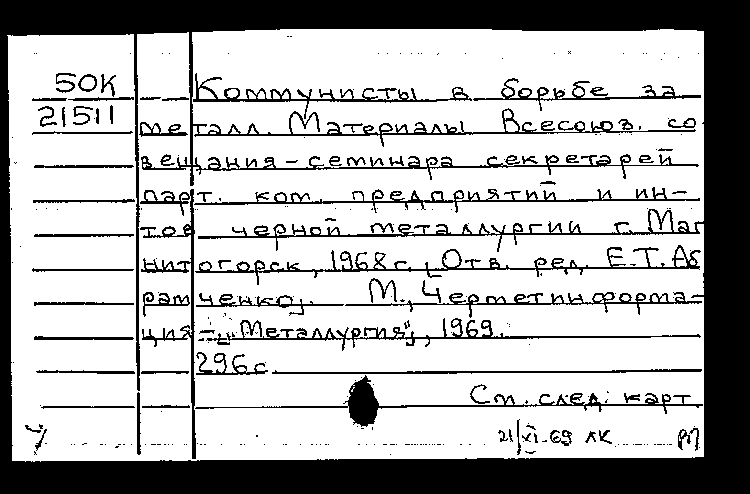 50К Коммунисты в борьбе за
21511 металл. Материалы Всесоюз. со
вещания-семинара секретарей
парт. ком. предприятий и ин-
тов черной металлургии г. Маг
нитогорск, 1968 г. Отв. ред. Е.Т. Аб
рамченко. М., Черметинформа-
ция - "Металлургия", 1969.
296 с.
См. след. карт.
21/XI-69 ЛК